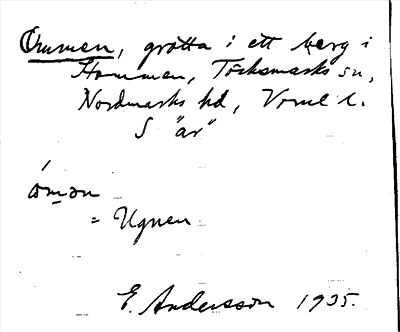 Ommen, grotta i ett berg i
Hommen, Töcksmarks sn,
Nordmarks hd, Vrml l.
S "är"
ómən
= Ugnen
E. Andersson 1935.